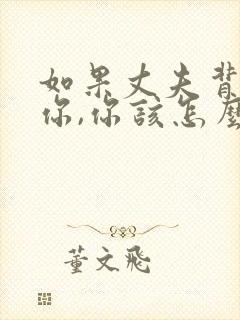 如果丈夫背
你,你该怎麼
董文飛